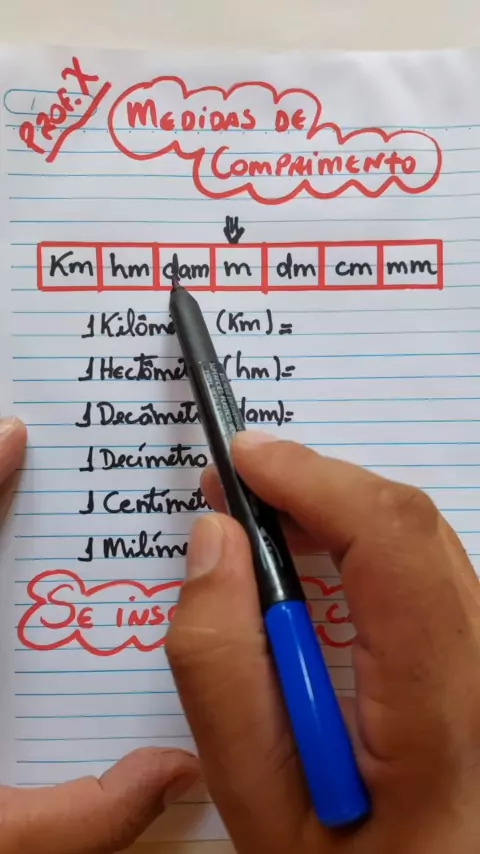 PROF. X
MEDIDAS DE
COMPRIMENTO
Km hm dam m dm cm mm
1 Kilôm (Km) =
1 Hectômet (hm)=
1 Decâmet dam)=
1 Decímetro
1 Centímet
1 Milím
SE INSC